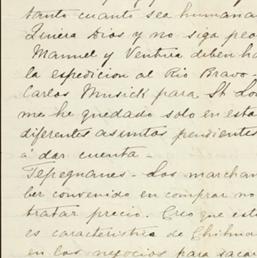 tanto cuanto sea humana
Quiera Dios y no siga peo
Manuel y Ventura deben ha
la espedicion al Rio Bravo
Carlos Musick para St Lo
me he quedado solo en esta
diferentes asuntos pendientes
á dar cuenta -
Tepeguanes - Los marchan
ber convenido en comprar no
tratar precio. Creo que este
es caracteristica de Chihua
en los negocios para sacar